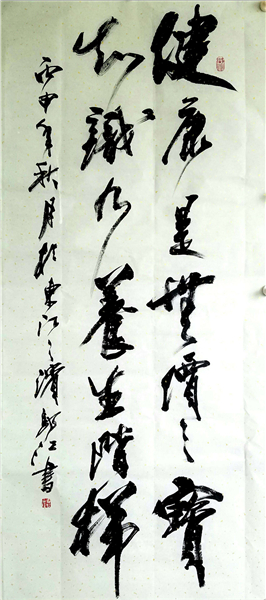 健康是無價之寶
知識乃養生階梯
丙申年秋月於東江之濱郭江書